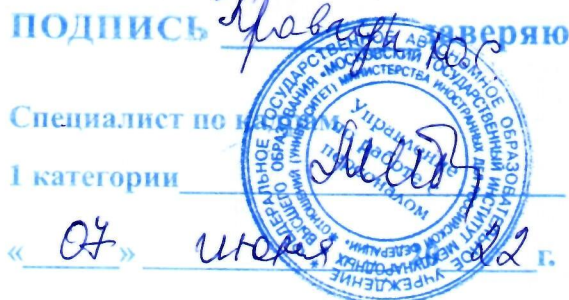 ПОДПИСЬ заверяю
Специалист по кадрам
1 категории
«07» июня 22 г.
ФЕДЕРАЛЬНОЕ ГОСУДАРСТВЕННОЕ АВТОНОМНОЕ ОБРАЗОВАТЕЛЬНОЕ УЧРЕЖДЕНИЕ
ВЫСШЕГО ОБРАЗОВАНИЯ «МОСКОВСКИЙ ГОСУДАРСТВЕННЫЙ ИНСТИТУТ МЕЖДУНАРОДНЫХ
ОТНОШЕНИЙ (УНИВЕРСИТЕТ) МИНИСТЕРСТВА ИНОСТРАННЫХ ДЕЛ РОССИЙСКОЙ ФЕДЕРАЦИИ»
Управление
по работе с
персоналом